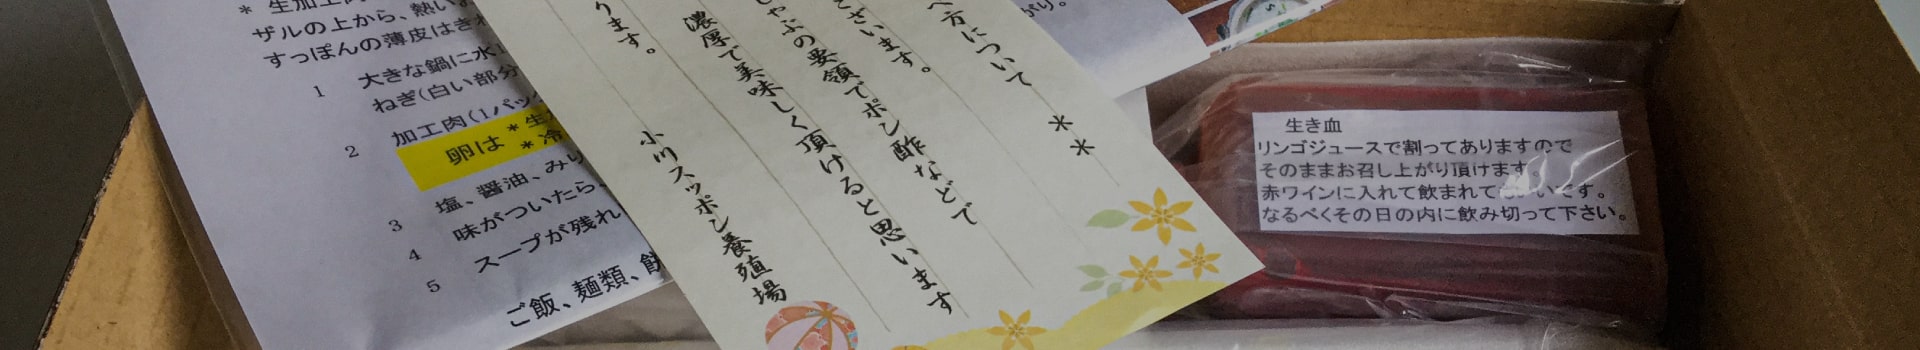 * 生加工肉
ザルの上から、熱い
すっぽんの薄皮はき
1 大きな鍋に水
ねぎ(白い部分
2 加工肉(1パック
卵は *生
*冷
3 塩、醤油、みり
4 味がついたら、
5 スープが残れ
ご飯、麺類、餅
べ方について **
ございます。
しゃぶの要領でポン酢などで
濃厚で美味しく頂けると思います
ります。
小川スッポン養殖場
がり。
生き血
リンゴジュースで割ってありますので
そのままお召し上がり頂けます。
赤ワインに入れて飲まれても いいです。
なるべくその日の内に飲み切って下さい。